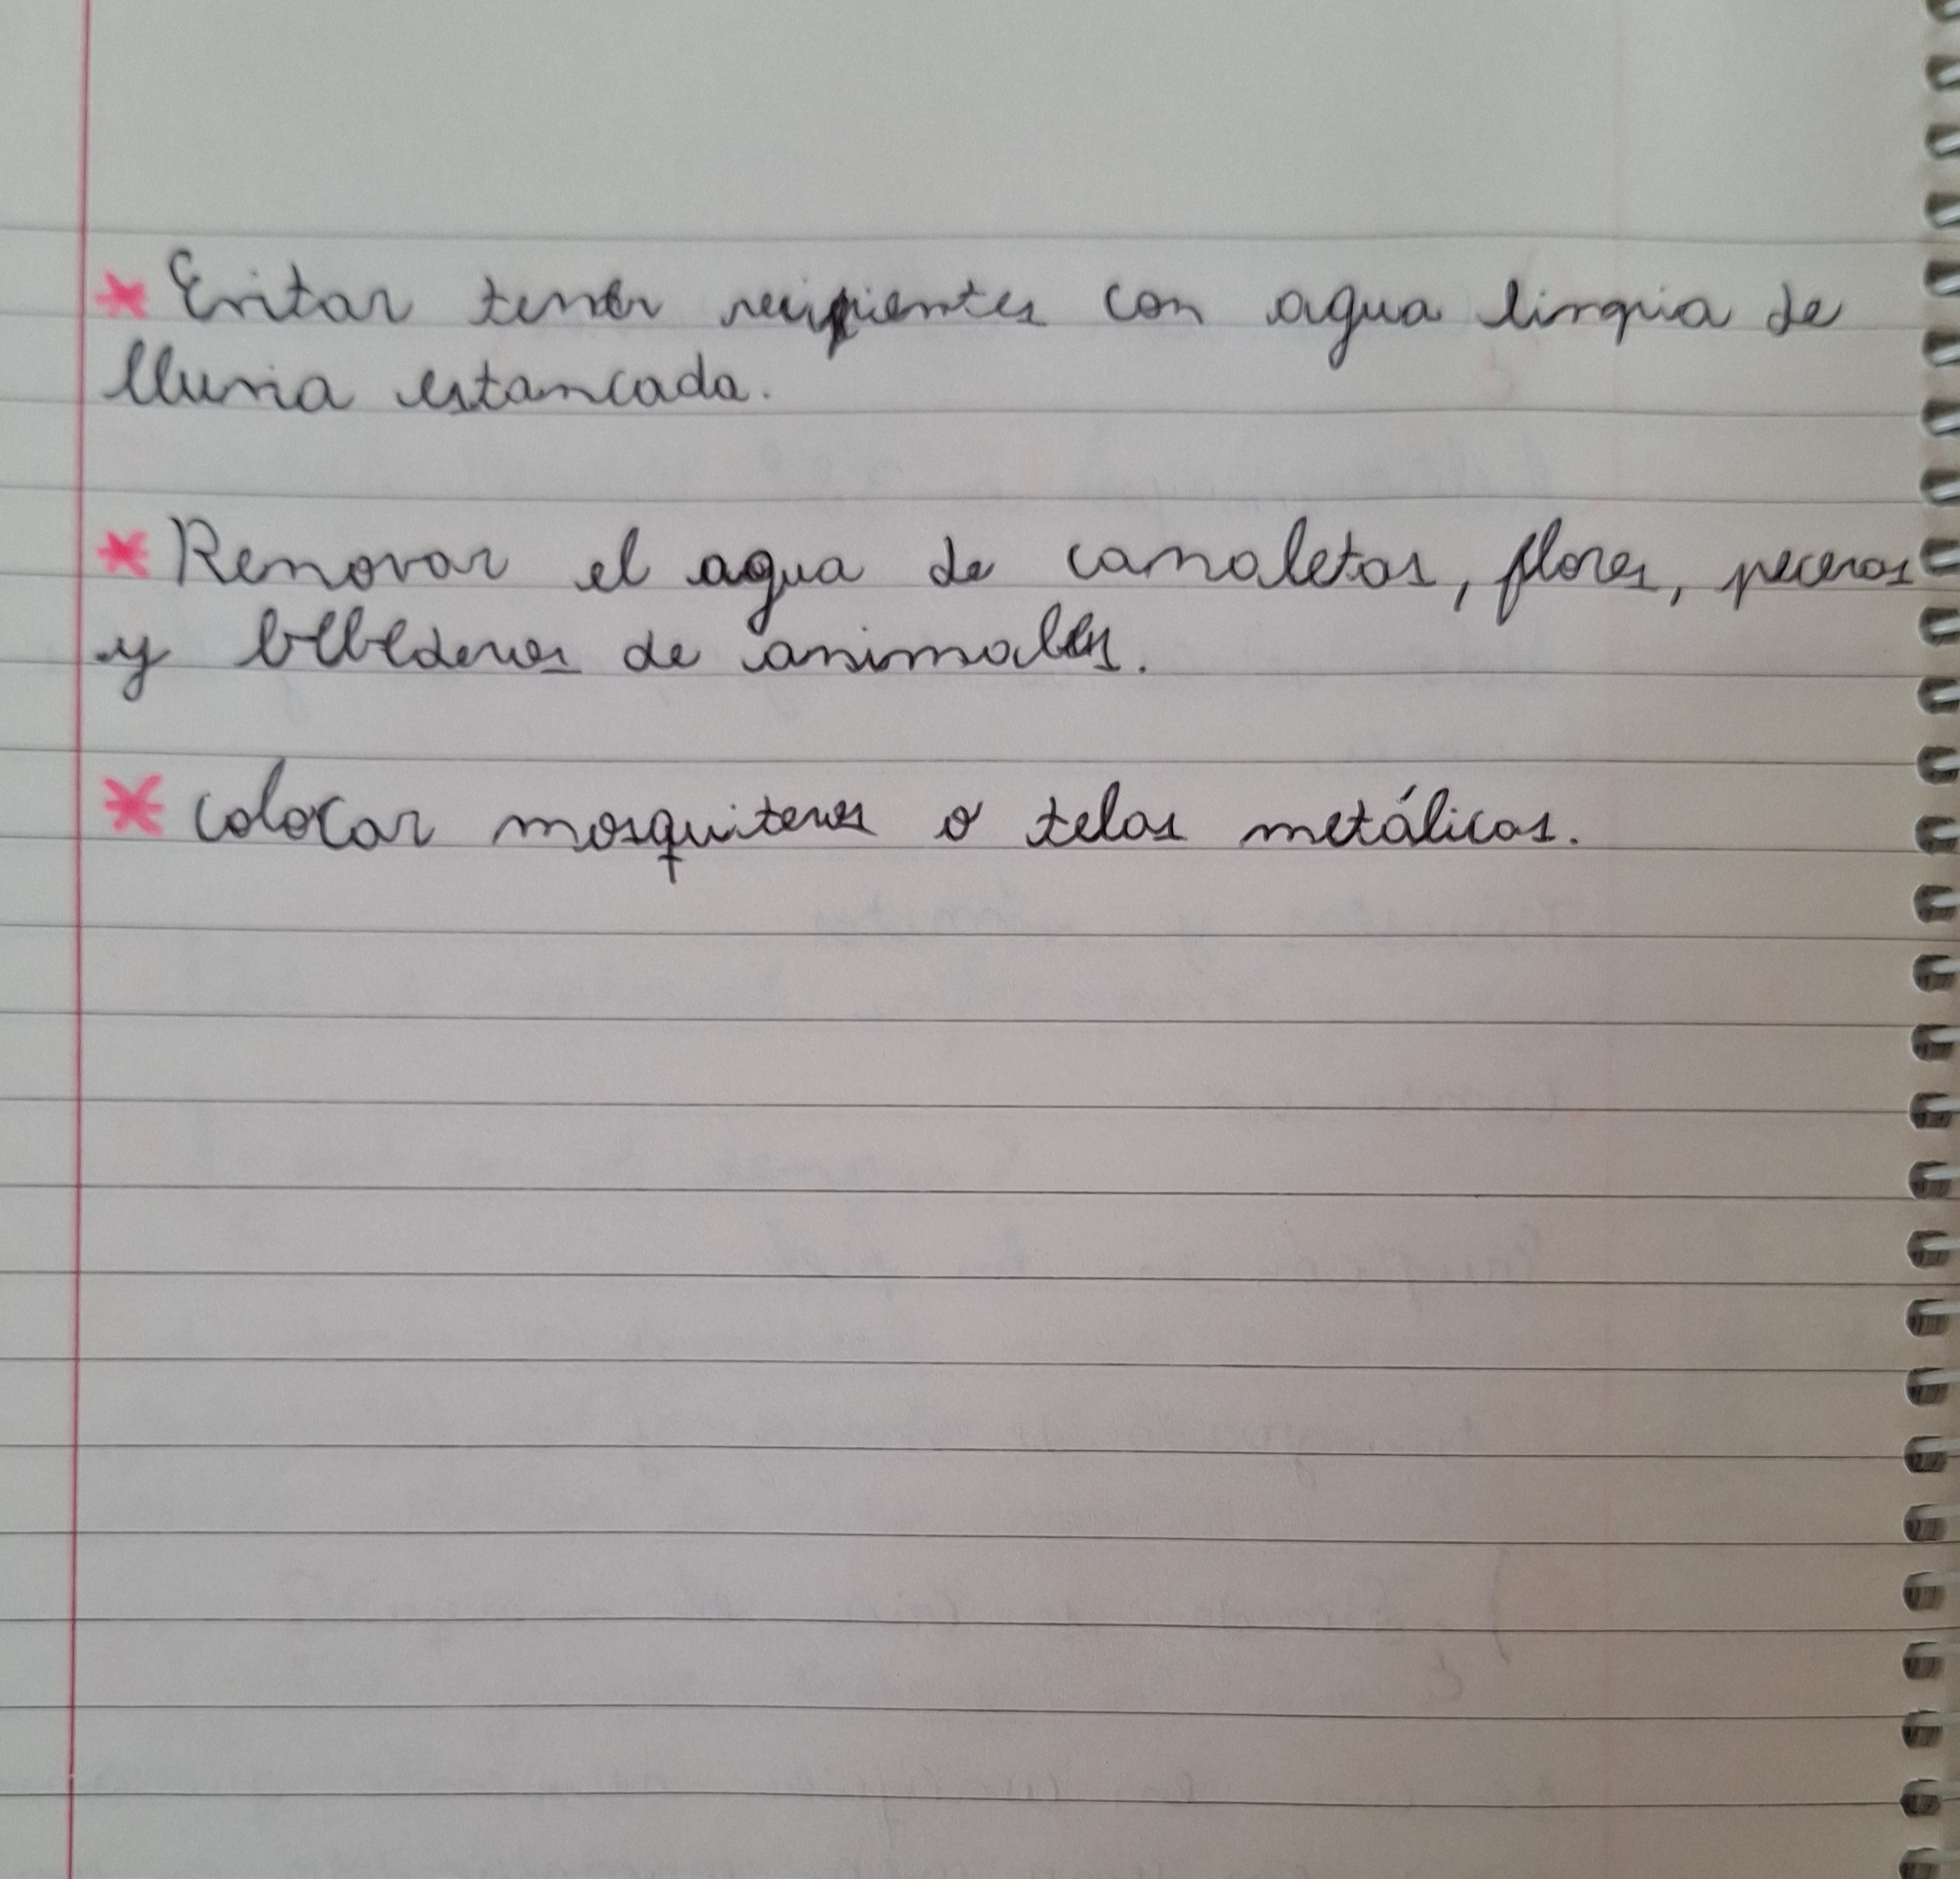 * Evitar tener recipientes con agua limpia de
lluvia estancada.
* Renovar el agua de canaletas, flores, peceras
y bebederos de animales.
* Colocar mosquiteros o telas metálicas.